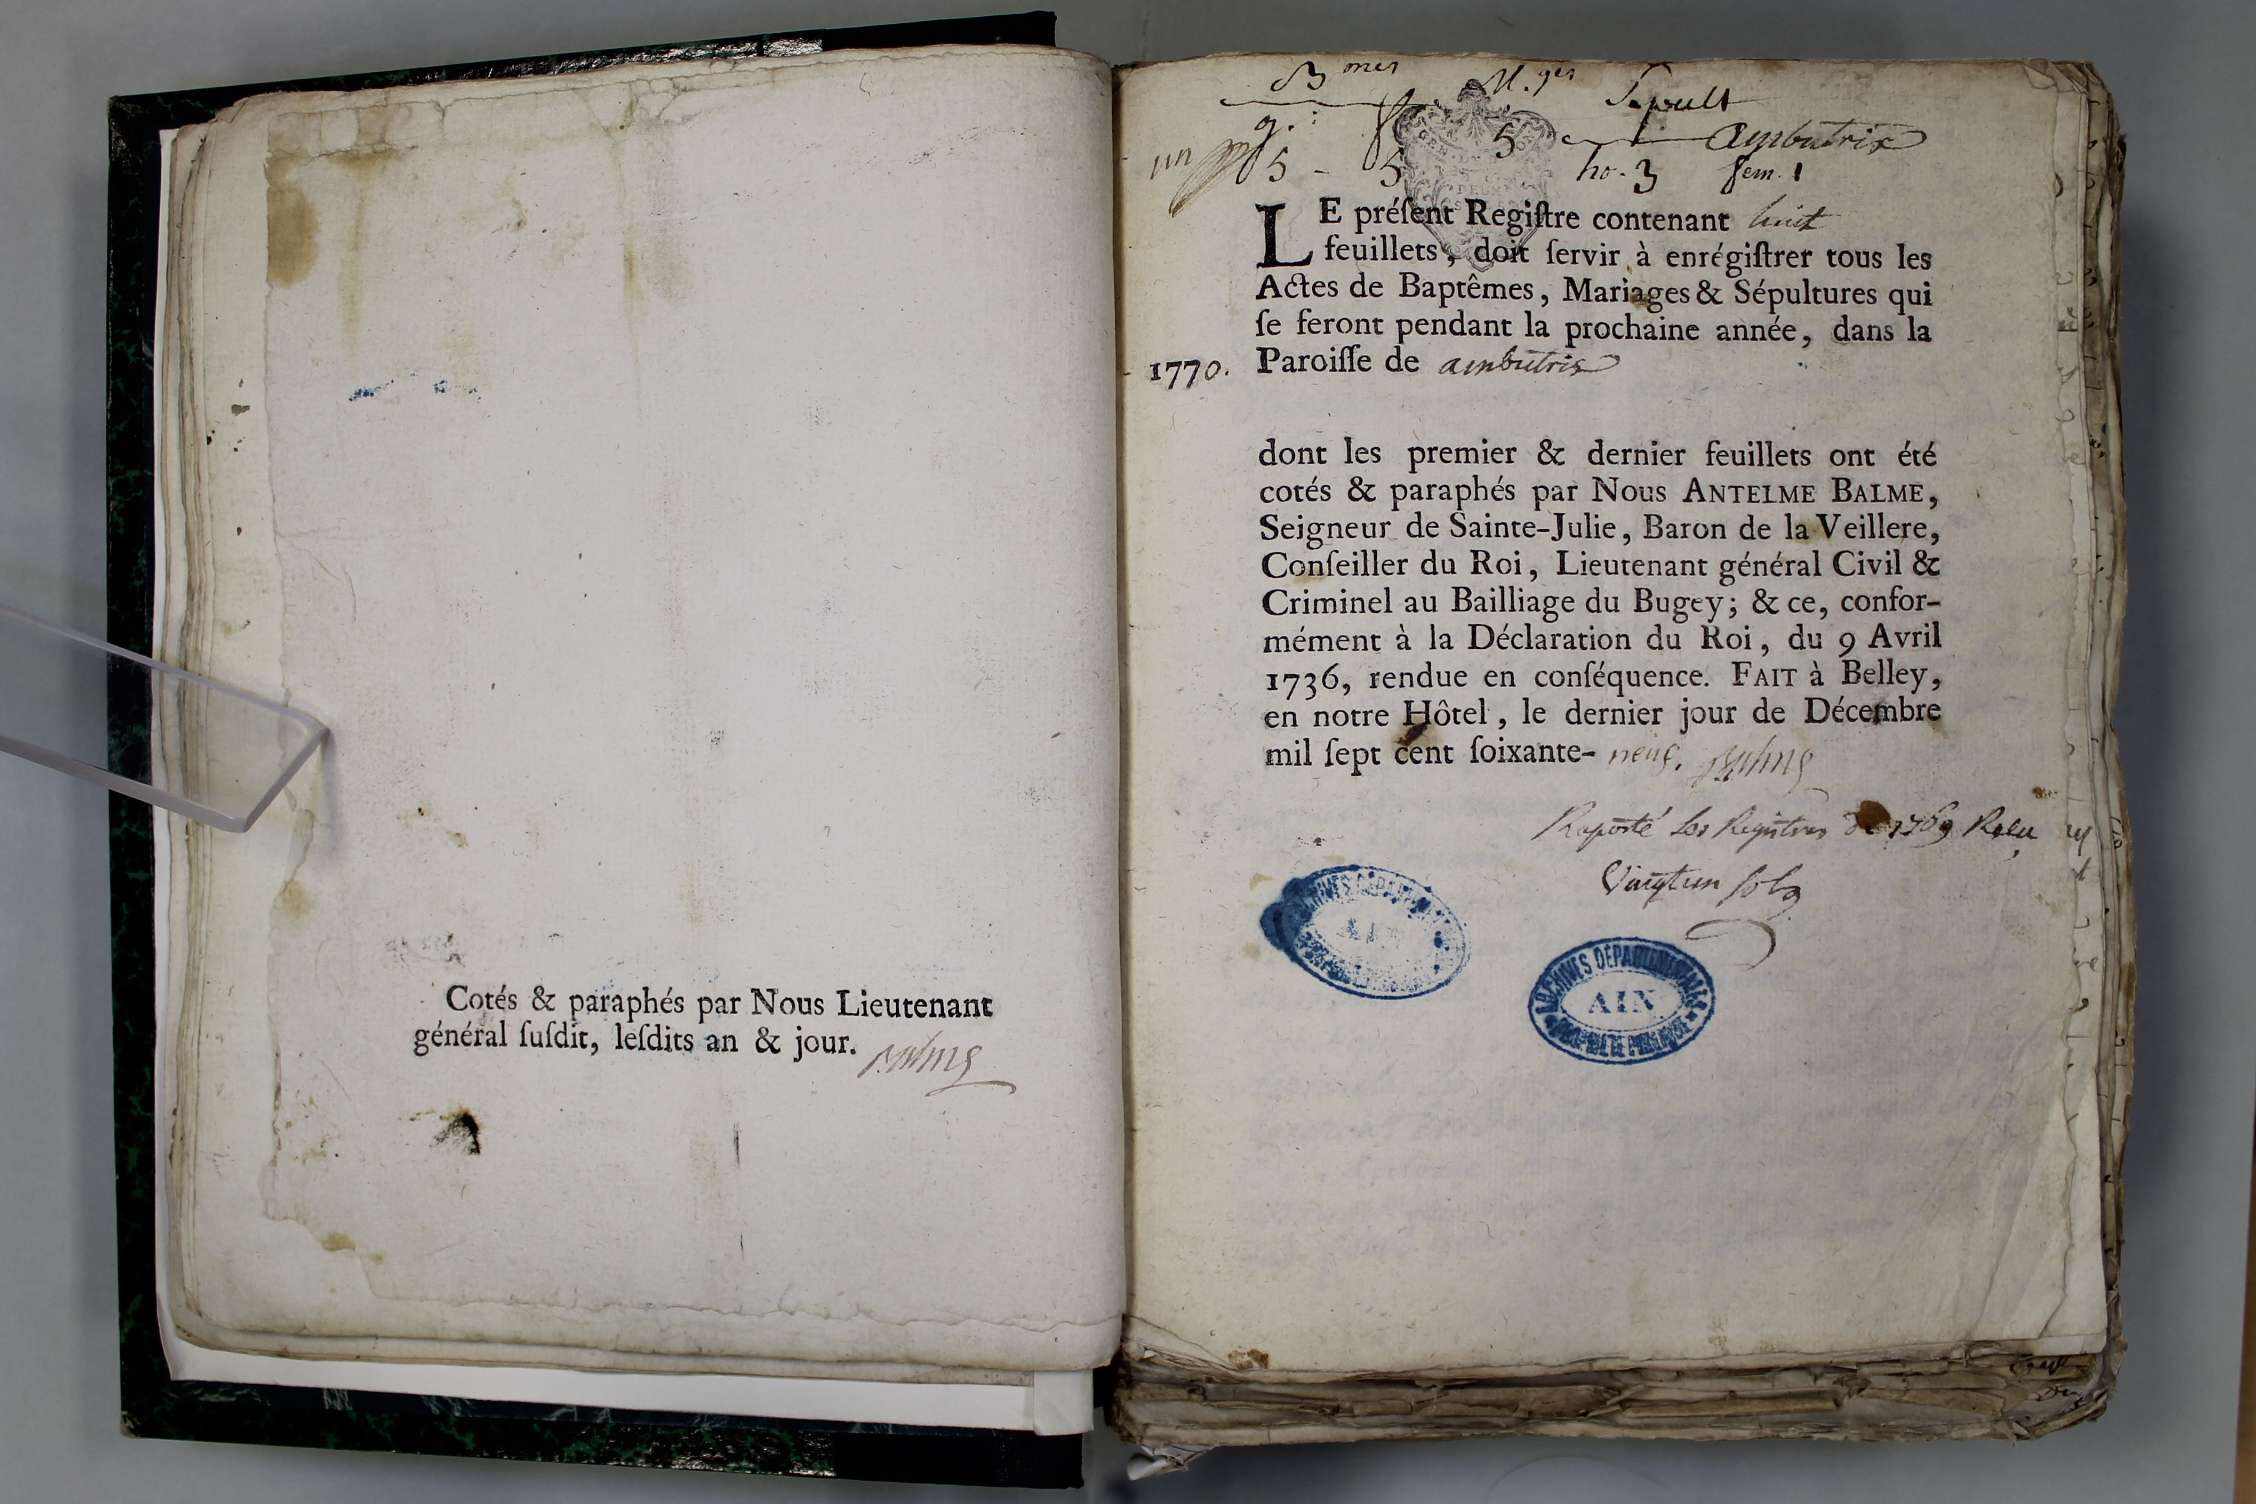 Cotés & paraphés par Nous Lieutenant
général ſuſdit, leſdits an & jour. Balme
B mes M.ges Sepult
g. f 5 ambutrix
un 5 - 5 ho. 3 fem. 1
LE préſent Regiſtre contenant huit
feuillets, doit ſervir à enrégiſtrer tous les
Actes de Baptêmes, Mariages & Sépultures qui
ſe feront pendant la prochaine année, dans la
1770. Paroiſſe de ambutrix
dont les premier & dernier feuillets ont été
cotés & paraphés par Nous ANTELME BALME,
Seigneur de Sainte-Julie, Baron de la Veillere,
Conſeiller du Roi, Lieutenant général Civil &
Criminel au Bailliage du Bugey; & ce, confor-
mément à la Déclaration du Roi, du 9 Avril
1736, rendue en conſéquence. FAIT à Belley,
en notre Hôtel, le dernier jour de Décembre
mil ſept cent ſoixante- neuf. Balme
Raporté les Registres de 1769 Reçu
Vingt un sols
ARCHIVES DÉPARTEMENTALES
AIN
PROPRIÉTÉ PUBLIQUE
ARCHIVES DÉPARTEMENTALES
AIN
PROPRIÉTÉ PUBLIQUE